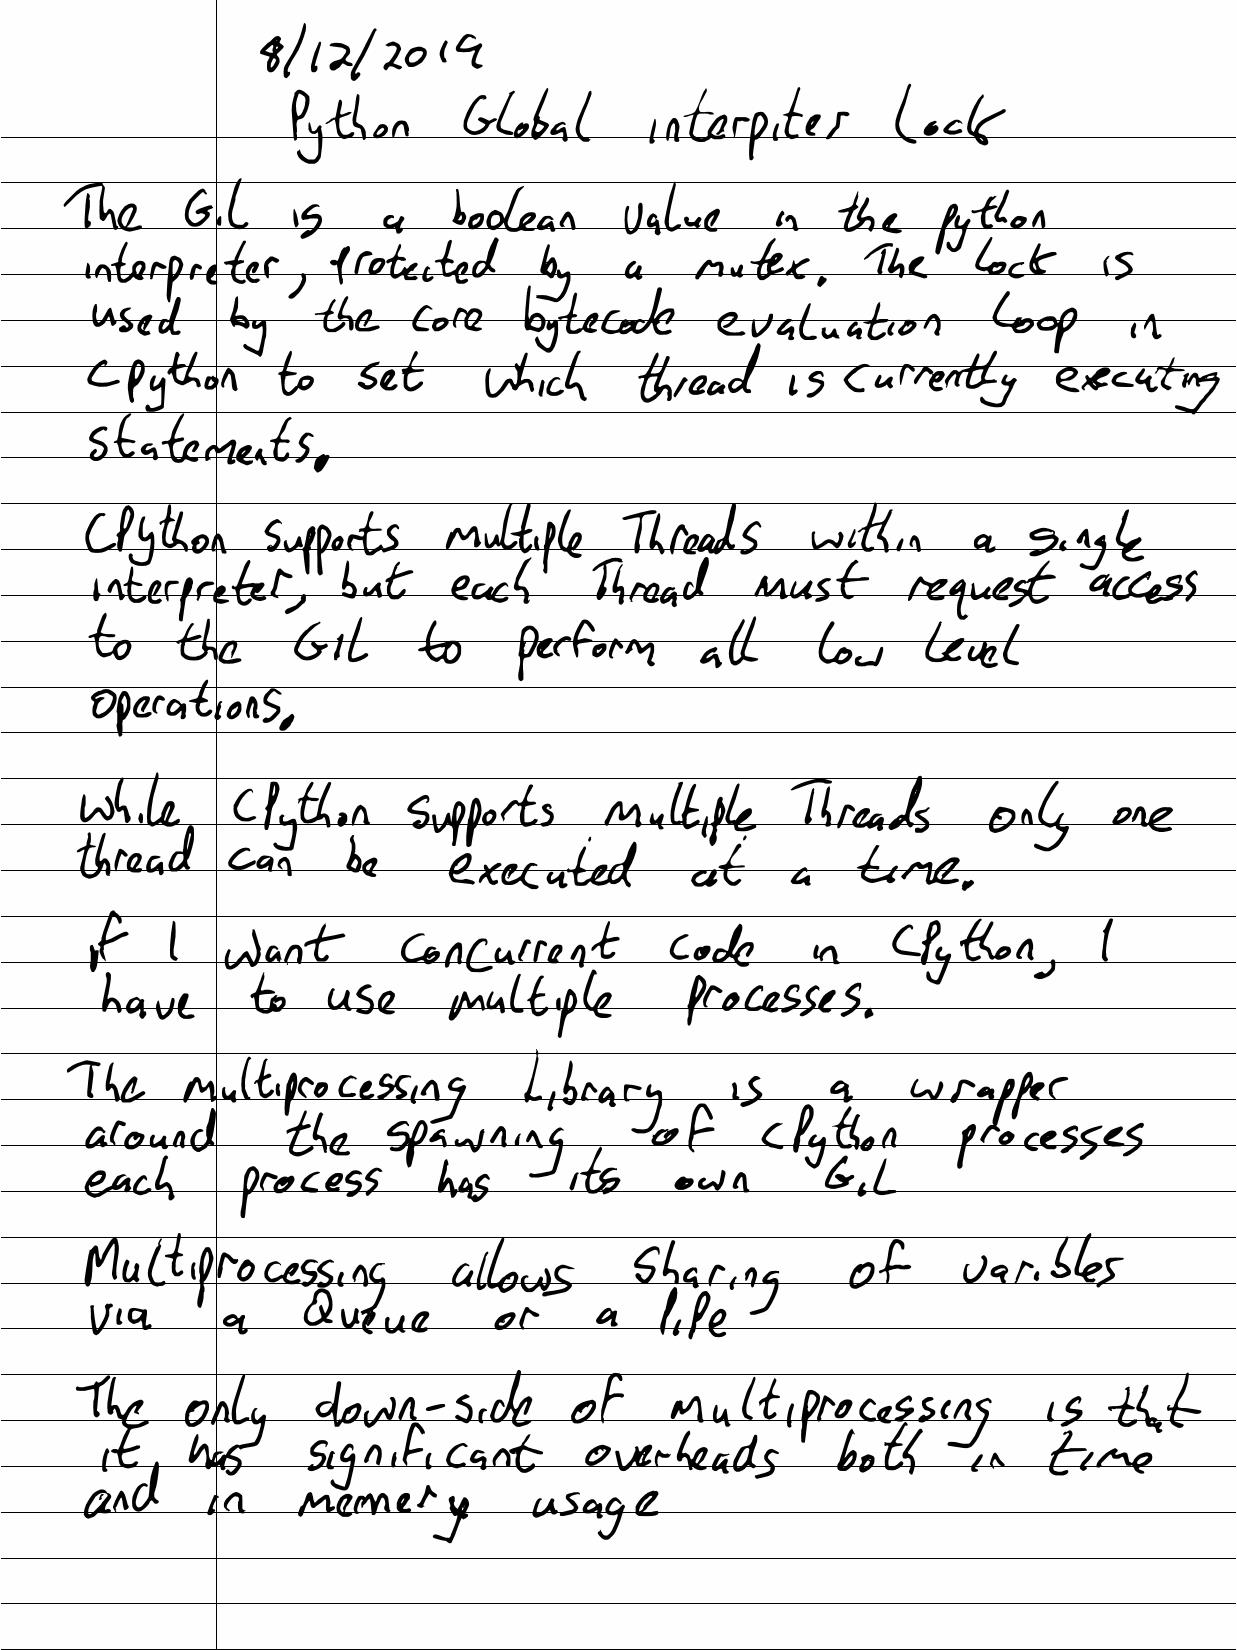 8/12/2019
Python Global interpiter Lock
The GIL is a boolean value in the python
interpreter, protected by a mutex. The lock is
used by the core bytecode evaluation loop in
CPython to set which thread is currently executing
statements.
CPython supports multiple Threads within a single
interpreter, but each Thread must request access
to the GIL to perform all low level
operations.
While CPython supports multiple Threads only one
thread can be executed at a time.
if I want concurrent code in CPython, I
have to use multiple processes.
The multiprocessing Library is a wrapper
around the spawning of CPython processes
each process has its own GIL
Multiprocessing allows sharing of varibles
via a Queue or a Pipe
The only down-side of multiprocessing is that
it has significant overheads both in time
and in memery usage